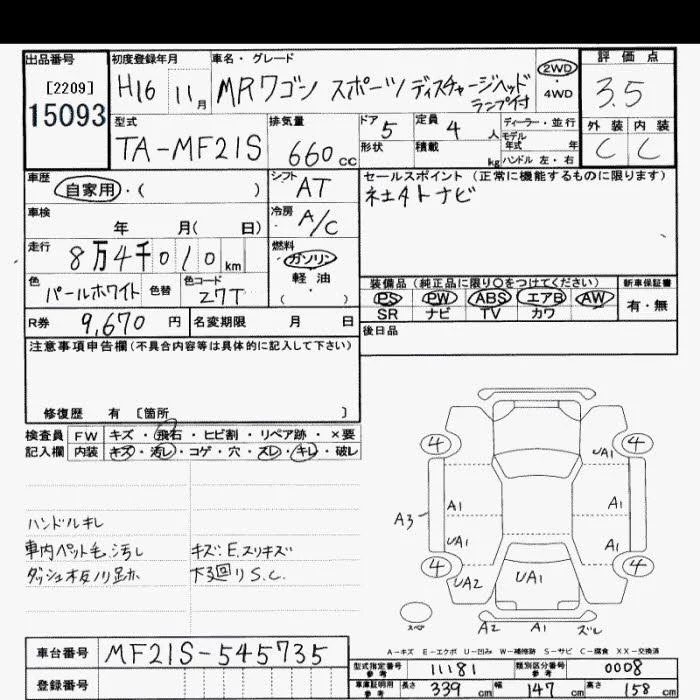 出品番号
[2209]
15093
初度登録年月
H16 11月
車名・グレード
MRワゴン スポーツ ディスチャージヘッド
ランプ付
2WD
・
4WD
評価点
3.5
型式
TA-MF21S
排気量
660cc
ドア 5
形状
定員 4人
積載 kg
ディーラー・並行
モデル
年式 年
ハンドル 左・右
外装 内装
C C
車歴
自家用・( )
シフト
AT
セールスポイント(正常に機能するものに限ります)
社外ナビ
車検
年 月( 日)
冷房
A/C
走行
8万4千010km
燃料
ガソリン
軽油
( ・ )
色
パールホワイト
色替
色コード
Z7T
装備品(純正品に限り○をつけてください)
PS PW ABS エアB AW
SR ナビ TV カワ
新車保証書
有・無
R券 9,670円
名変期限 月 日
後日品
注意事項申告欄(不具合内容等は具体的に記入して下さい)
修復歴 有 [箇所 ]
検査員 FW キズ・飛石・ヒビ割・リペア跡・×要
記入欄 内装 キズ・汚レ・コゲ・穴・スレ・キレ・破レ
ハンドルキレ
車内ペット毛.汚レ キズ:E.スリキズ
ダッシュ板ノリ跡 下廻りS.C.
4 4
UA1
A3 A1 A1
UA1 A1
4 4
UA2 UA1
A2 A1 ズレ
A-キズ E-エクボ U-凹み W-補修跡 S-サビ C-腐食 XX-交換済
車台番号 MF21S-545735
登録番号
型式指定番号
参考
11181
類別区分番号
参考
0008
車庫証明用
参考
長さ 339cm 幅 147cm 高さ 158cm